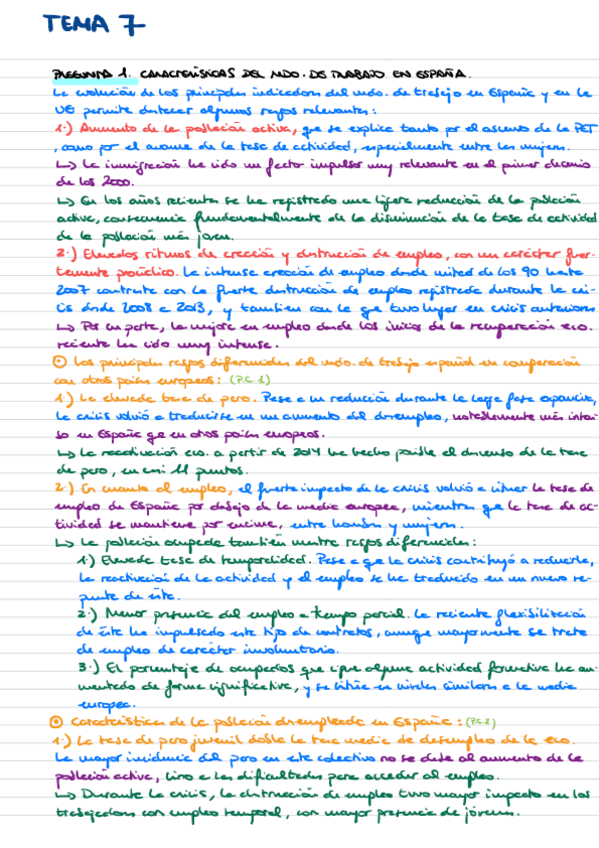 TEMA 7
PREGUNTA 1. CARACTERÍSTICAS DEL MDO. DE TRABAJO EN ESPAÑA.
La evolución de los principales indicadores del mdo. de trabajo en España y en la
UE permite destacar algunos rasgos relevantes:
1.) Aumento de la población activa, que se explica tanto por el ascenso de la PET
, como por el avance de la tasa de actividad, especialmente entre las mujeres.
↳ La inmigración ha sido un factor impulsor muy relevante en el primer decenio
de los 2000.
↳ En los años recientes se ha registrado una ligera reducción de la población
activa, consecuencia fundamentalmente de la disminución de la tasa de actividad
de la población más joven.
2.) Elevados ritmos de creación y destrucción de empleo, con un carácter fuer-
temente procíclico. La intensa creación de empleo desde mitad de los 90 hasta
2007 contrasta con la fuerte destrucción de empleo registrada durante la cri-
sis desde 2008 a 2013, y también con la que tuvo lugar en crisis anteriores.
↳ Por su parte, la mejora en empleo desde los inicios de la recuperación eco.
reciente ha sido muy intensa.
⊙ Los principales rasgos diferenciales del mdo. de trabajo español en comparación
con otros países europeos: (P.C. 1)
1.) La elevada tasa de paro. Pese a su reducción durante la larga fase expansiva,
la crisis volvió a traducirse en un aumento del desempleo, notablemente más inten-
so en España que en otros países europeos.
↳ La reactivación eco. a partir de 2014 ha hecho posible el descenso de la tasa
de paro, en casi 11 puntos.
2.) En cuanto al empleo, el fuerte impacto de la crisis volvió a situar la tasa de
empleo de España por debajo de la media europea, mientras que la tasa de ac-
tividad se mantiene por encima, entre hombres y mujeres.
↳ La población ocupada también muestra rasgos diferenciales:
1.) Elevada tasa de temporalidad. Pese a que la crisis contribuyó a reducirla,
la reactivación de la actividad y el empleo se ha traducido en un nuevo re-
punte de ésta.
2.) Menor presencia del empleo a tiempo parcial. La reciente flexibilización
de éste ha impulsado este tipo de contratos, aunque mayormente se trata
de empleo de carácter involuntario.
3.) El porcentaje de ocupados que sigue alguna actividad formativa ha au-
mentado de forma significativa, y se sitúa en niveles similares a la media
europea.
⊙ Características de la población desempleada en España: (P.C.2)
1.) La tasa de paro juvenil dobla la tasa media de desempleo de la eco.
La mayor incidencia del paro en este colectivo no se debe al aumento de la
población activa, sino a las dificultades para acceder al empleo.
↳ Durante la crisis, la destrucción de empleo tuvo mayor impacto en los
trabajadores con empleo temporal, con mayor presencia de jóvenes.